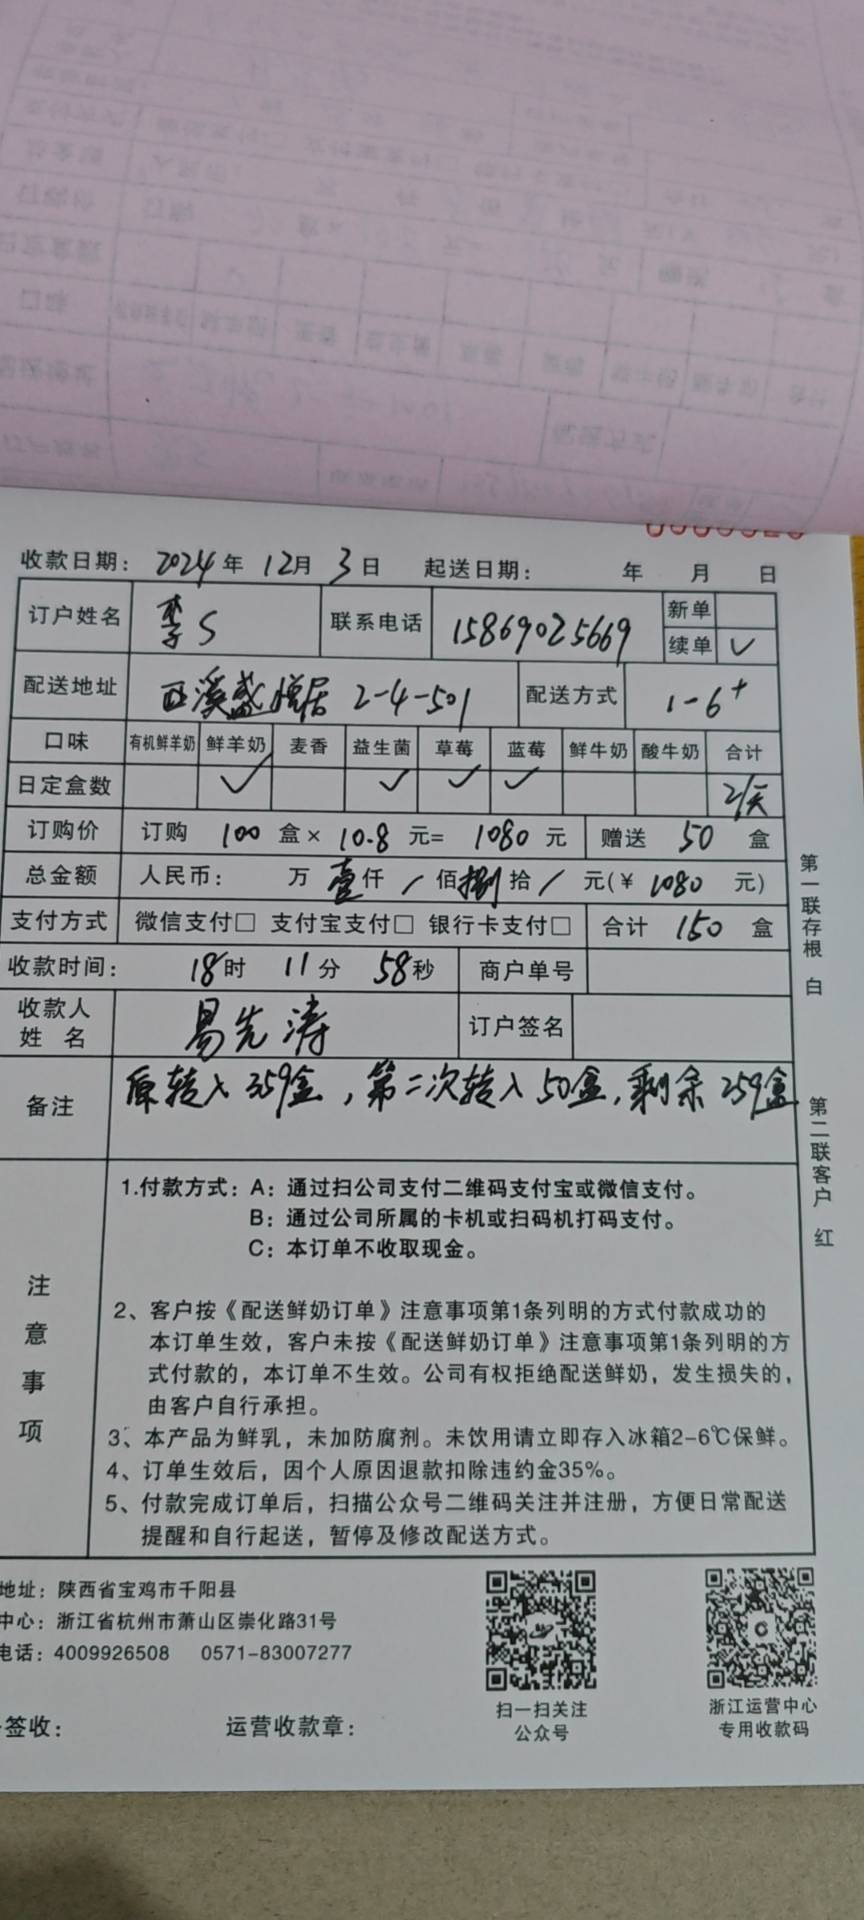 收款日期： 2024 年 12月 3日 起送日期： 年 月 日
订户姓名 李S 联系电话 15869025669 新单
续单 ✓
配送地址 西溪盛悦居 2-4-501 配送方式 1-6+
口味 有机鲜羊奶 鲜羊奶 麦香 益生菌 草莓 蓝莓 鲜牛奶 酸牛奶 合计
日定盒数 ✓ ✓ ✓ ✓ 2/天
订购价 订购 100 盒× 10.8 元= 1080 元 赠送 50 盒
总金额 人民币： 万 壹仟 / 佰 捌拾 / 元(￥ 1080 元)
支付方式 微信支付□ 支付宝支付□ 银行卡支付□ 合计 150 盒
收款时间： 18时 11分 58秒 商户单号
收款人姓名 易先涛 订户签名
备注 原转入359盒，第二次转入50盒，剩余259盒
注意事项
1.付款方式：A：通过扫公司支付二维码支付宝或微信支付。
B：通过公司所属的卡机或扫码机打码支付。
C：本订单不收取现金。
2、客户按《配送鲜奶订单》注意事项第1条列明的方式付款成功的
本订单生效，客户未按《配送鲜奶订单》注意事项第1条列明的方
式付款的，本订单不生效。公司有权拒绝配送鲜奶，发生损失的，
由客户自行承担。
3、本产品为鲜乳，未加防腐剂。未饮用请立即存入冰箱2-6℃保鲜。
4、订单生效后，因个人原因退款扣除违约金35%。
5、付款完成订单后，扫描公众号二维码关注并注册，方便日常配送
提醒和自行起送，暂停及修改配送方式。
第一联存根 白
第二联客户 红
地址：陕西省宝鸡市千阳县
中心：浙江省杭州市萧山区崇化路31号
电话：4009926508 0571-83007277
扫一扫关注
公众号
浙江运营中心
专用收款码
签收： 运营收款章：